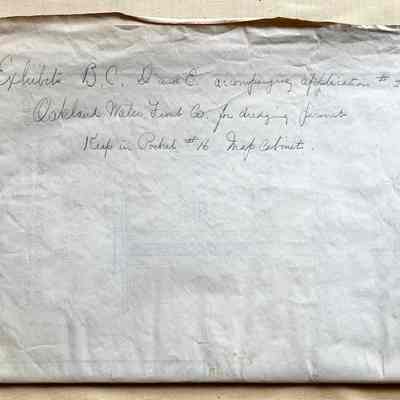 Exhibits B, C, D and E accompanying application #
Oakland Water Front Co. for dredging permit
Keep in Pocket #16 Map Cabinet.